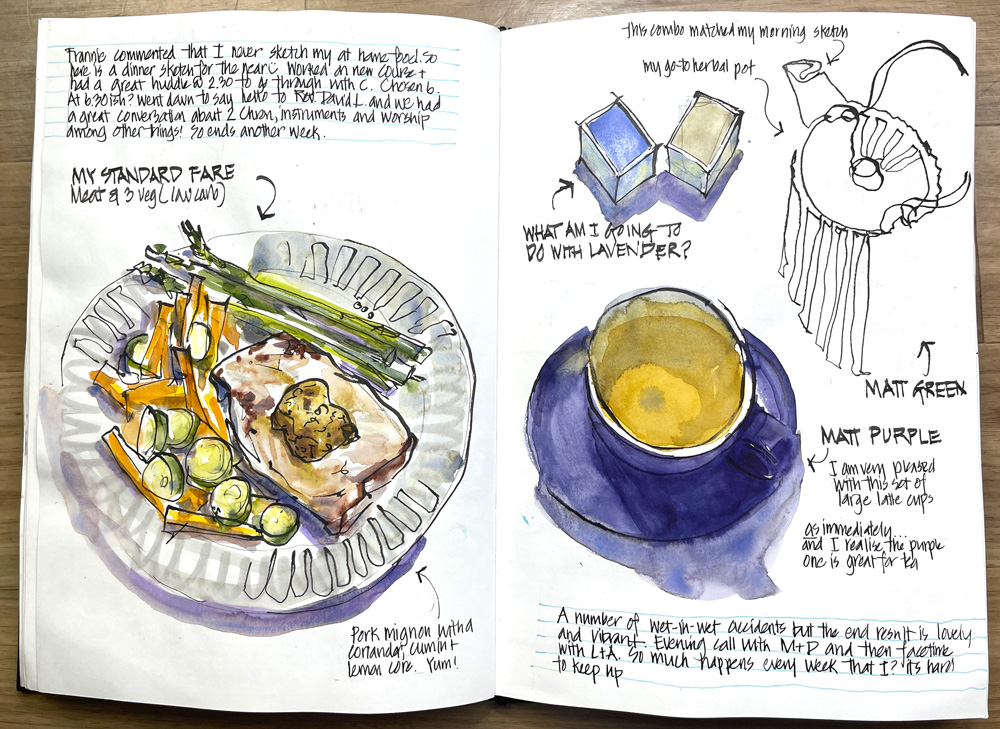 Frannie commented that I never sketch my at home food. So
here is a dinner sketch for the year! Worked on new course +
had a great huddle @ 2.30 to go through with C. Chosen 6.
At 6.30ish? went down to say hello to Rev. David L. and we had
a great conversation about 2 Chron, instruments and worship
among other things! So ends another week.
MY STANDARD FARE
Meat & 3 veg (low carb)
Pork mignon with a
coriander, cumin +
lemon core. Yum!
this combo matched my morning sketch
my go-to herbal pot
WHAT AM I GOING TO
DO WITH LAVENDER?
MATT GREEN
MATT PURPLE
I am very pleased
with this set of
large latte cups
as immediately...
and I realise the purple
one is great for tea
A number of wet-in-wet accidents but the end result is lovely
and vibrant. Evening call with M+D and then facetime
with L+A. So much happens every week that I? it's hard
to keep up